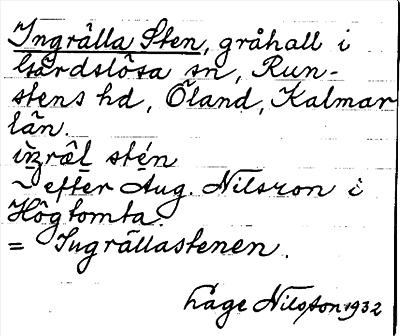 Ingrälla Sten, gråhall i
Gärdslösa sn, Run-
stens hd, Öland, Kalmar
län.
~ efter Aug. Nilsson i
Högtomta.
= Ingrällastenen.
Låge Nilsson 1932